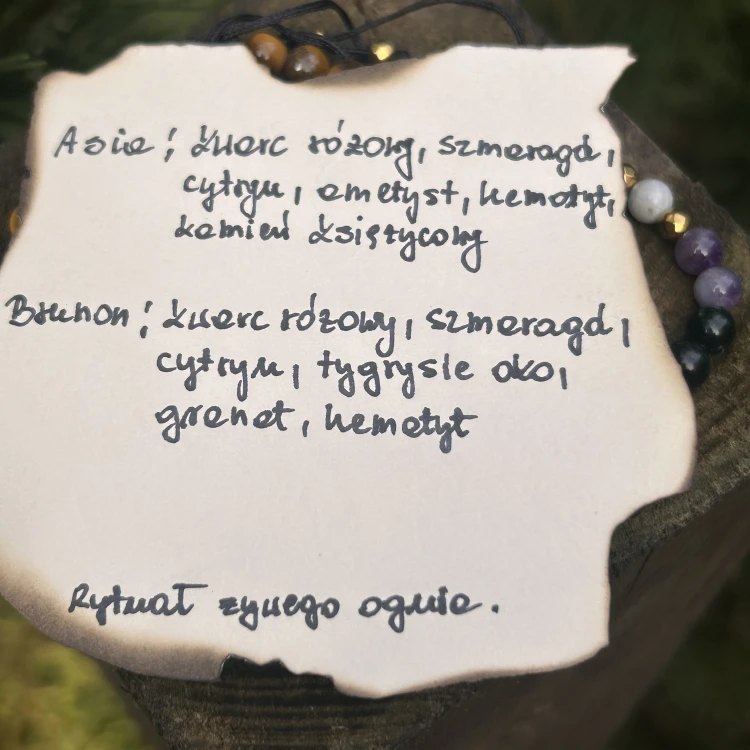 Asia: kwarc różowy, szmaragd,
cytryn, ametyst, hematyt,
kamień księżycowy
Brunon: kwarc różowy, szmaragd,
cytryn, tygrysie oko,
granat, hematyt
Rytuał żywego ognia.